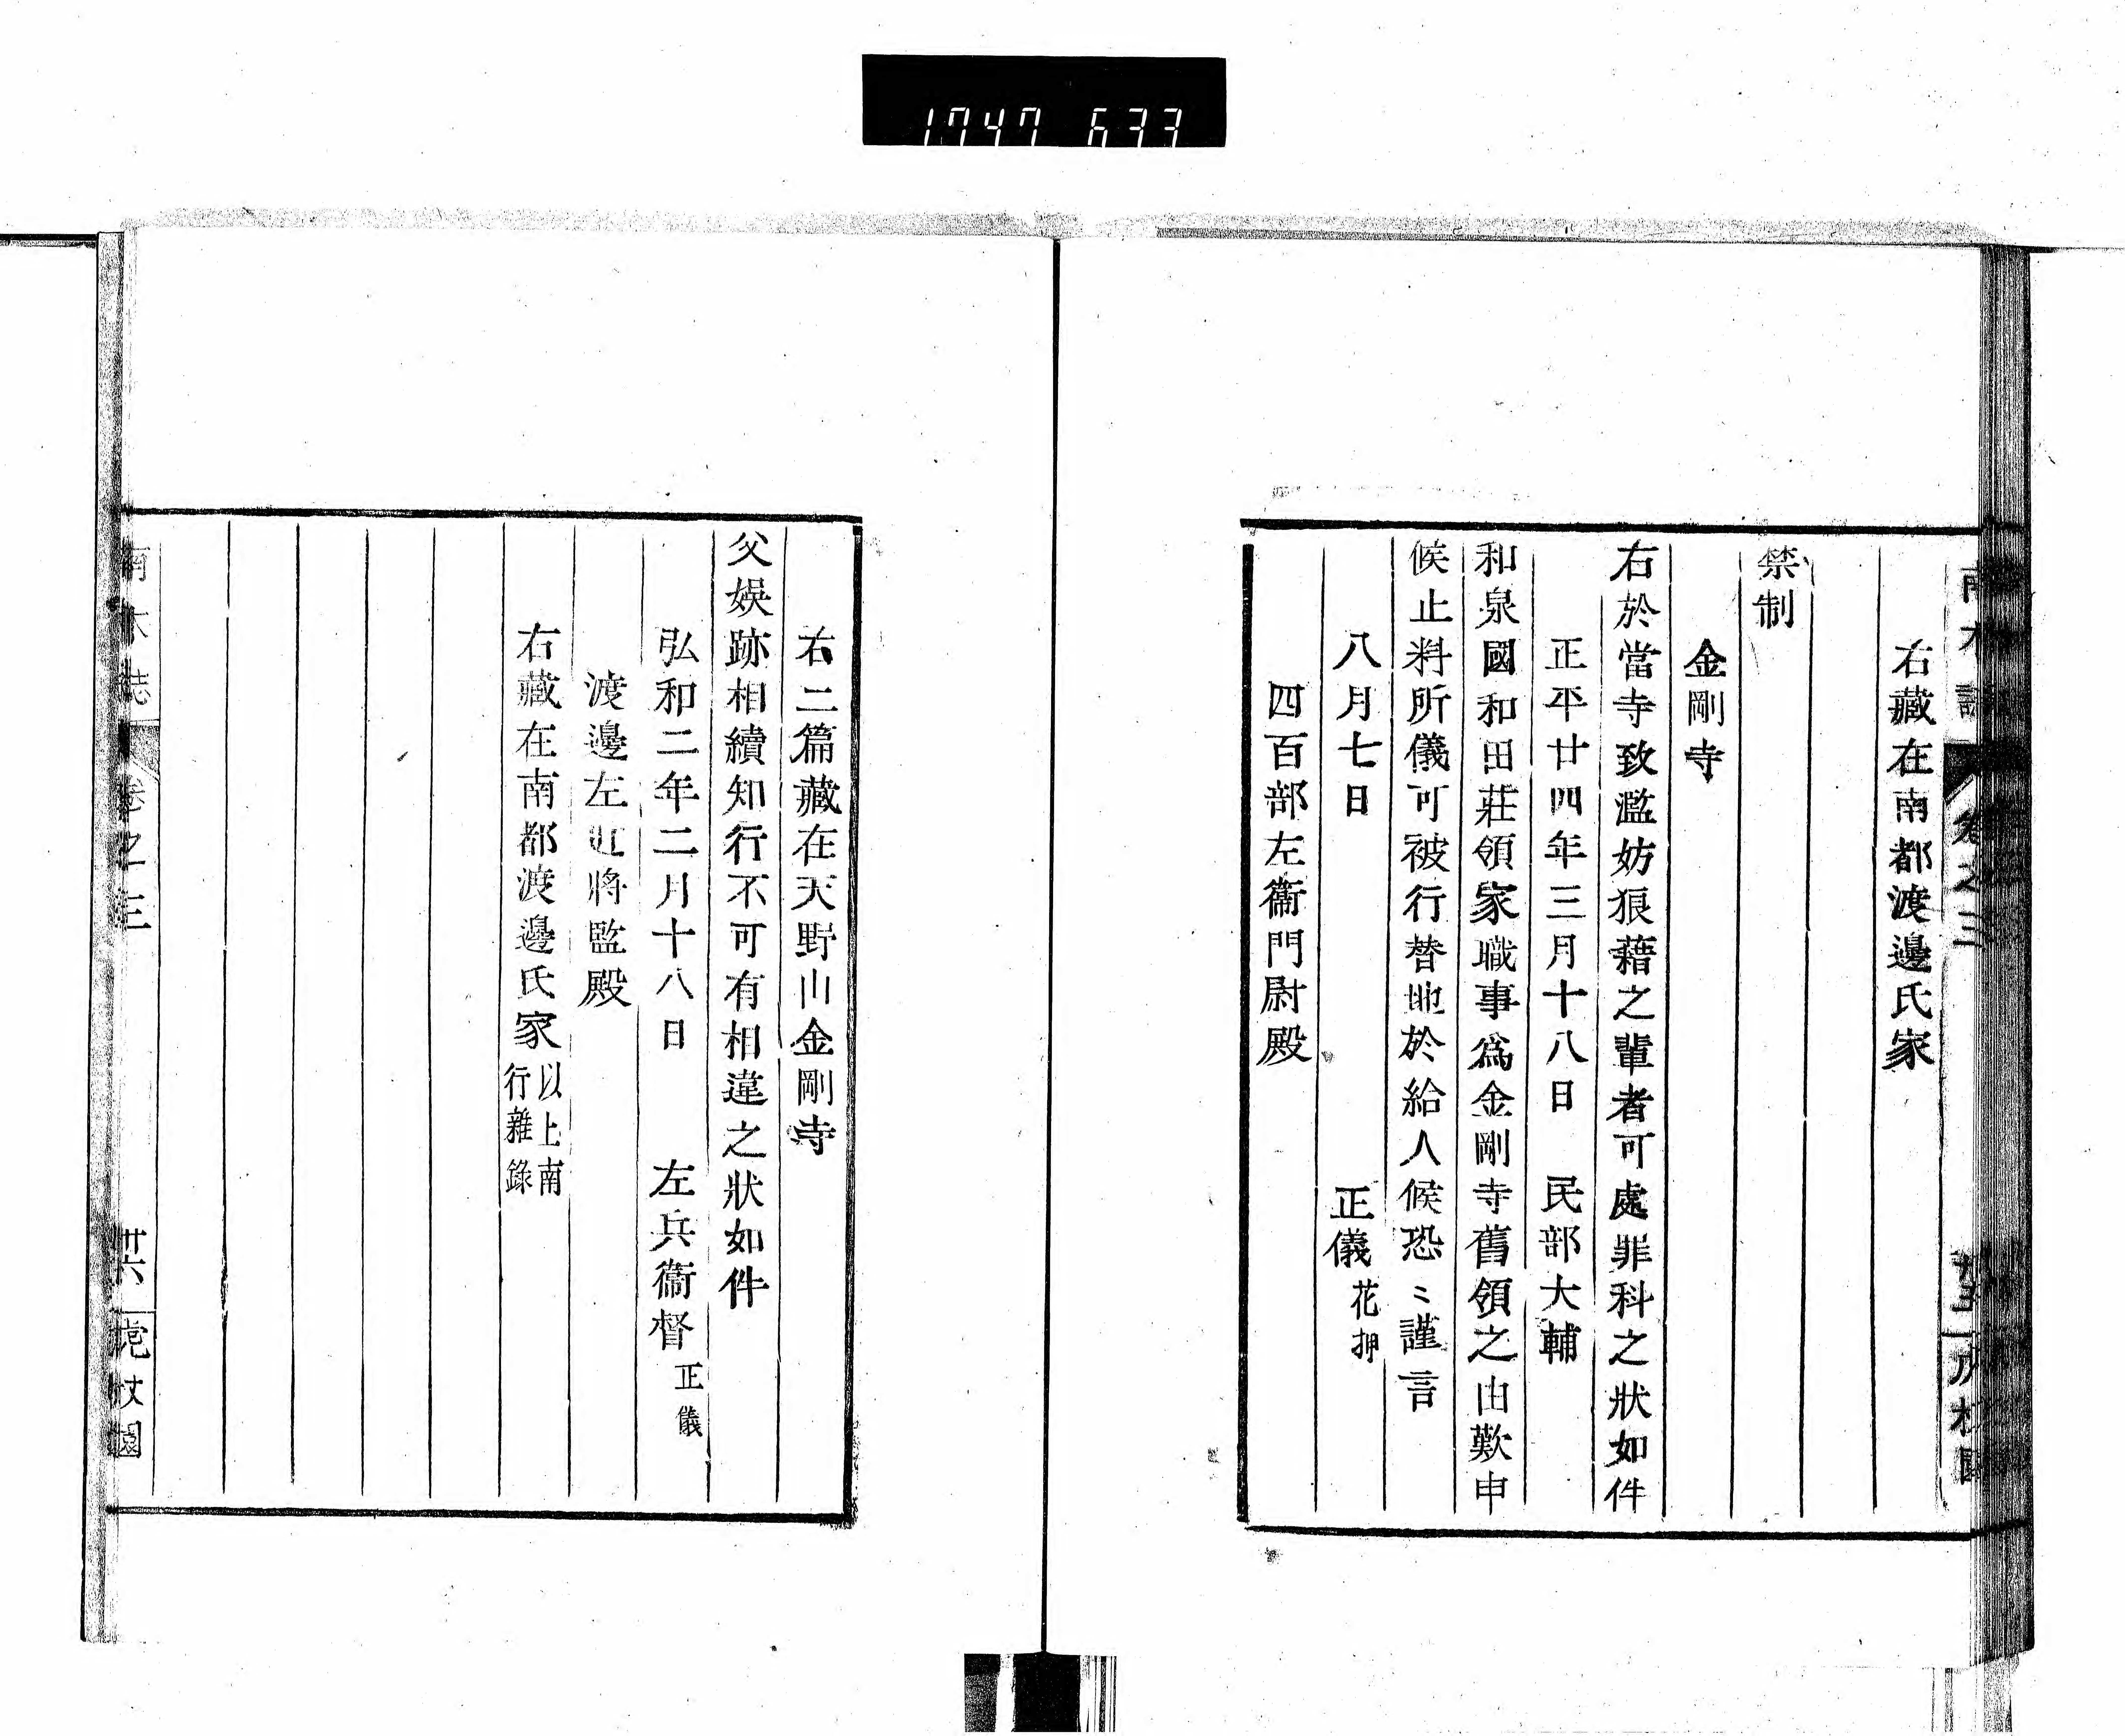 1747 633
右藏在南都渡邊氏家
禁制
金剛寺
右於當寺致濫妨狼藉之輩者可處罪科之狀如件
正平廿四年三月十八日　民部大輔
和泉國和田莊領家職事爲金剛寺舊領之由歎申
候止料所儀可被行替地於給人候恐〻謹言
八月七日　正儀花押
四百部左衞門尉殿
右二篇藏在天野山金剛寺
父娯跡相續知行不可有相違之狀如件
弘和二年二月十八日　左兵衞督正儀
渡邊左近將監殿
右藏在南都渡邊氏家以上南
行雜錄
南木誌　卷之三　廿六